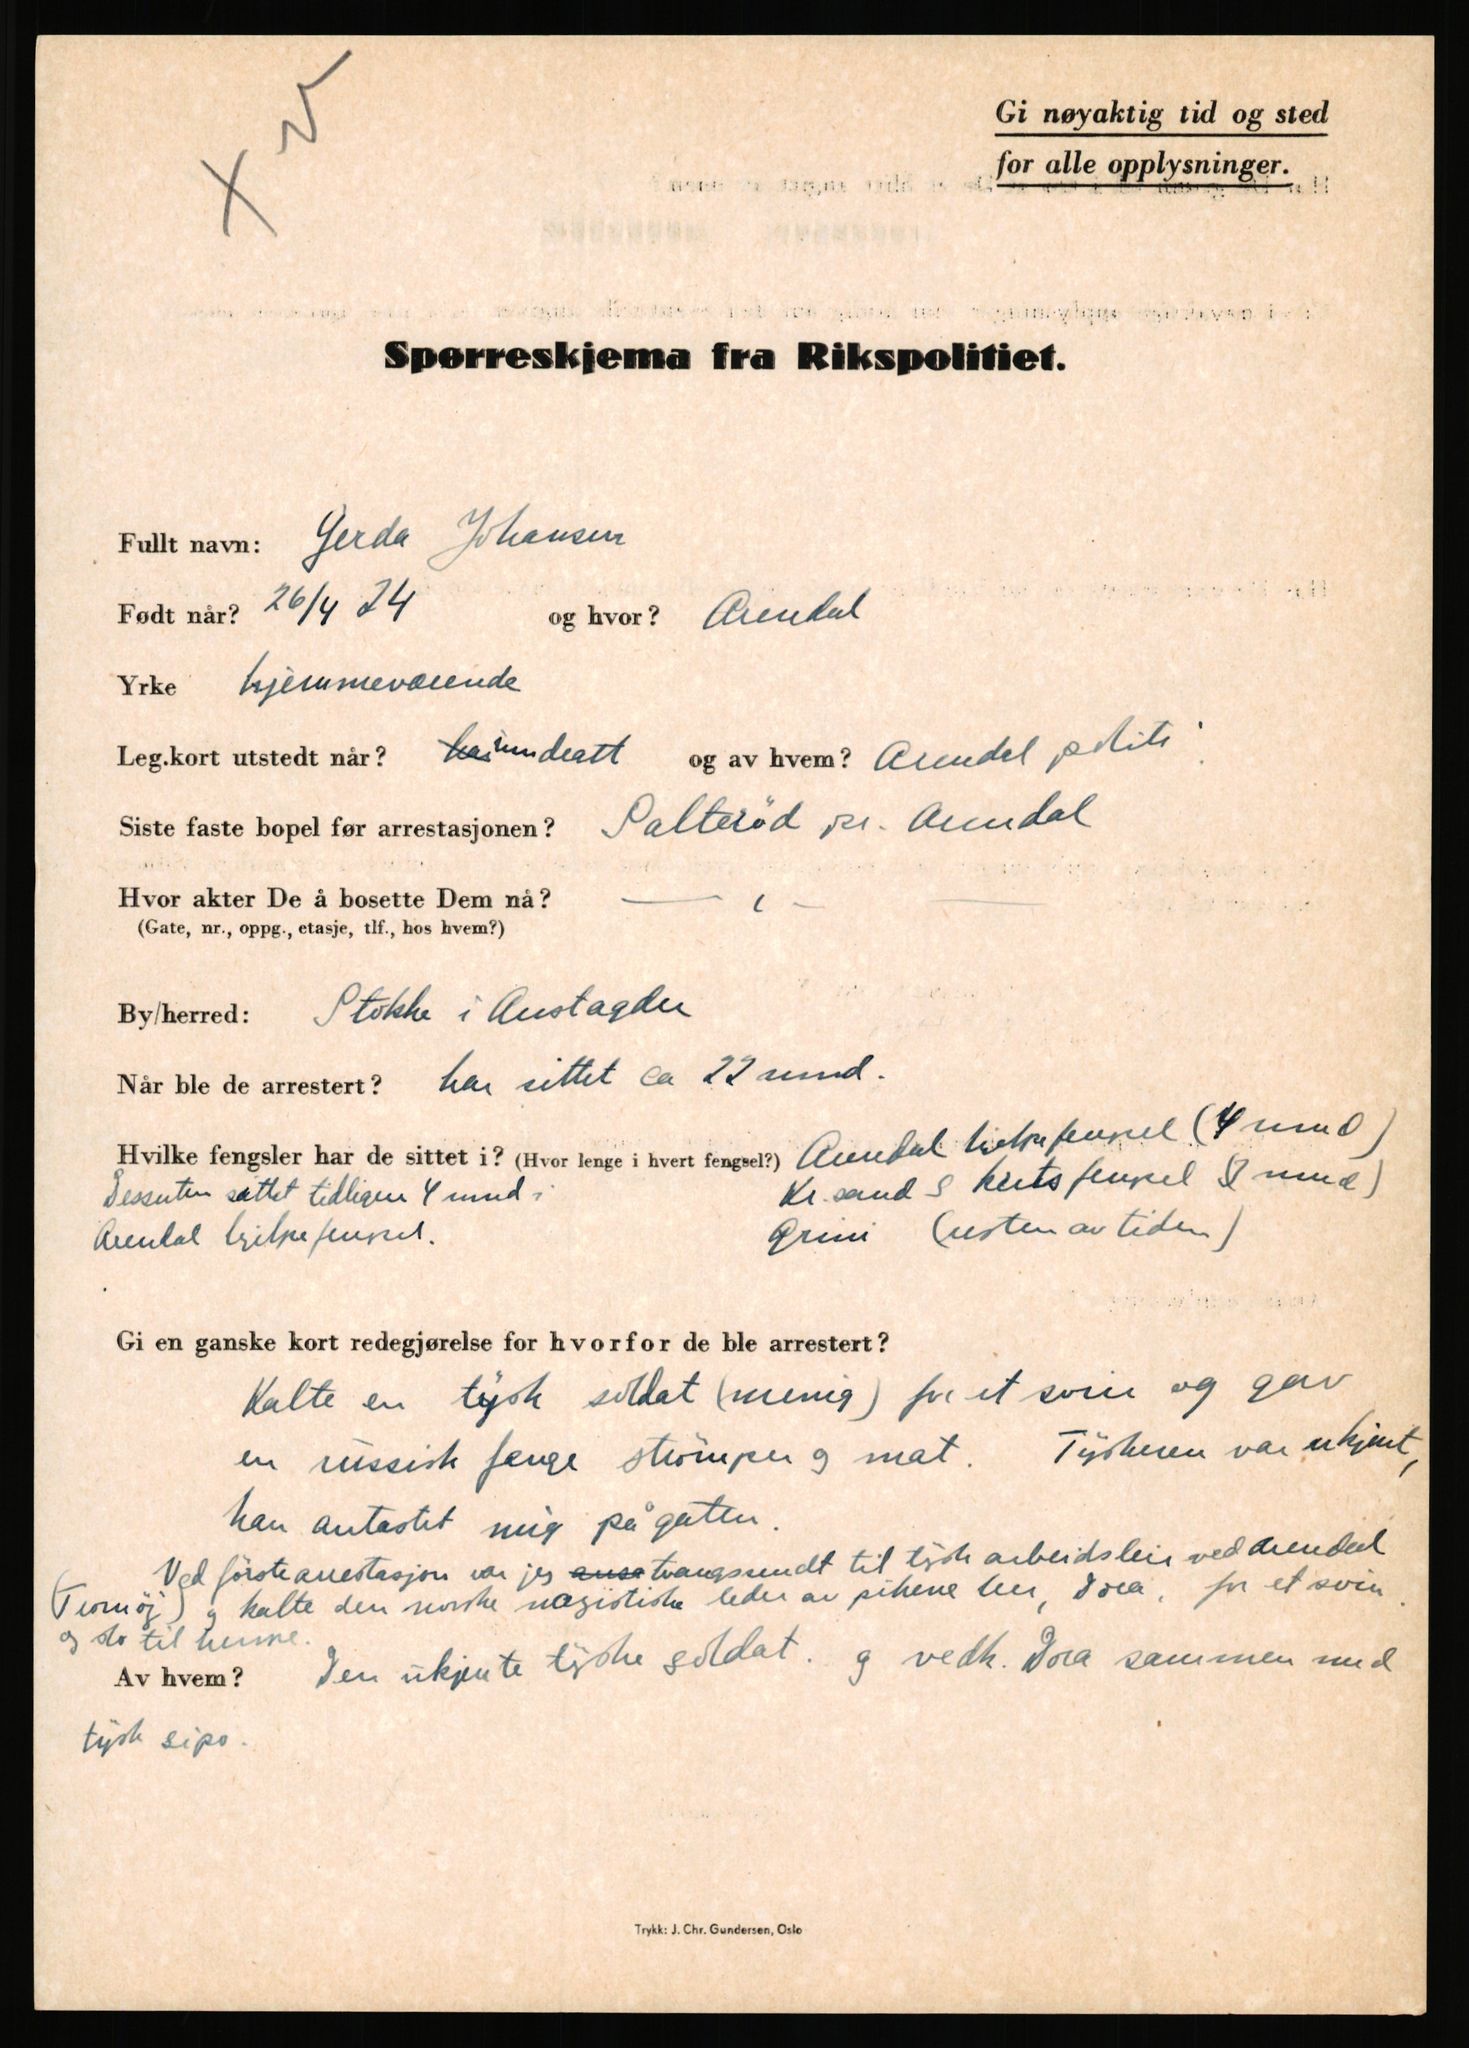 Gi nøyaktig tid og sted
for alle opplysninger.
Spørreskjema fra Rikspolitiet.
Fullt navn: Gerda Johansen
Født når? 26/4 24 og hvor? Arendal
Yrke hjemmeværende
Leg.kort utstedt når? inndratt og av hvem? Arendal politi
Siste faste bopel før arrestasjonen? Salterød pr. Arendal
Hvor akter De å bosette Dem nå? — " —
(Gate, nr., oppg., etasje, tlf., hos hvem?)
By/herred: Stokke i Austagder
Når ble de arrestert? har sittet ca 22 mnd.
Hvilke fengsler har de sittet i? (Hvor lenge i hvert fengsel?) Arendal hjelpefengsel (4 mnd)
Dessuten sittet tidligere 4 mnd i Kr.sand kretsfengsel 8 mnd)
Arendal hjelpefengsel. Grini (resten av tiden)
Gi en ganske kort redegjørelse for hvorfor de ble arrestert?
Kalte en tysk soldat (menig) for et svin og gav
en russisk fange strømper og mat. Tyskeren var ukjent,
han antastet mig på gaten.
Ved første arrestasjon var jeg tvangssendt til tysk arbeidsleir ved Arendal
(Tromøy) og kalte den norske nazistiske leder av pikene her, Dora, for et svin
og slo til henne.
Av hvem? Den ukjente tyske soldat. og vedk. Dora sammen med
tysk sipo.
Trykk: J. Chr. Gundersen, Oslo